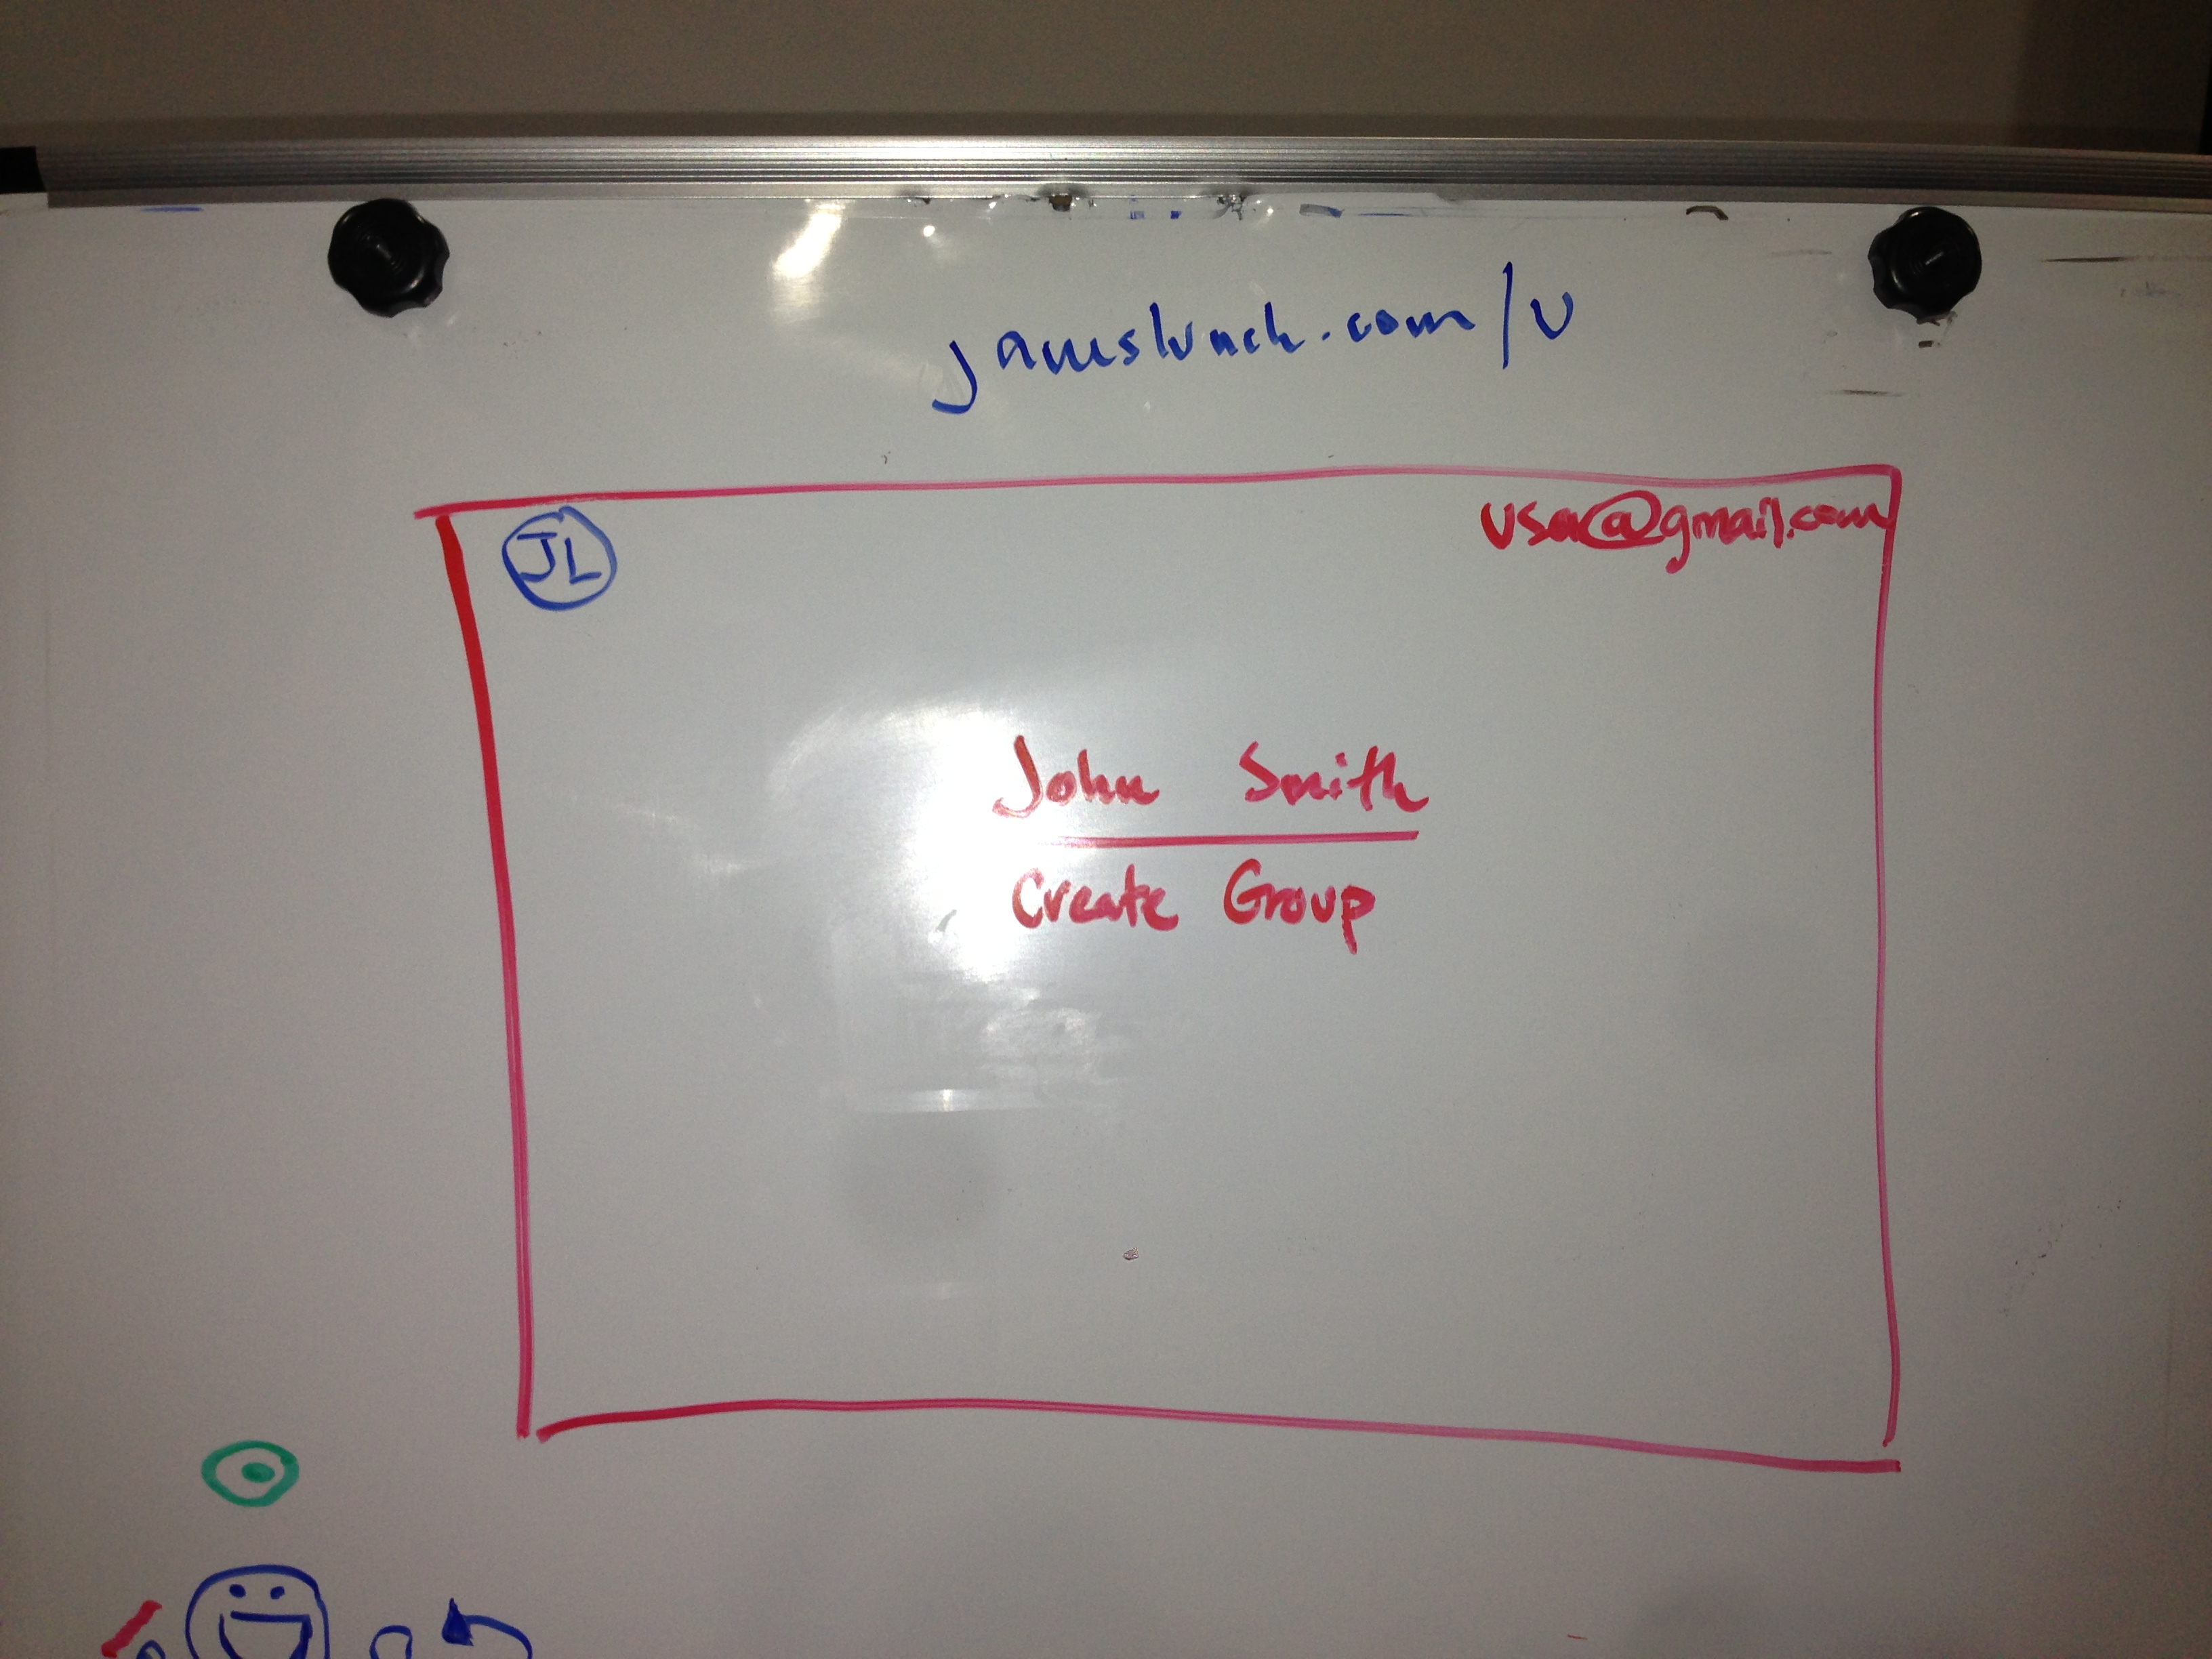 jameslunch.com/U
JL
user@gmail.com
John Smith
Create Group